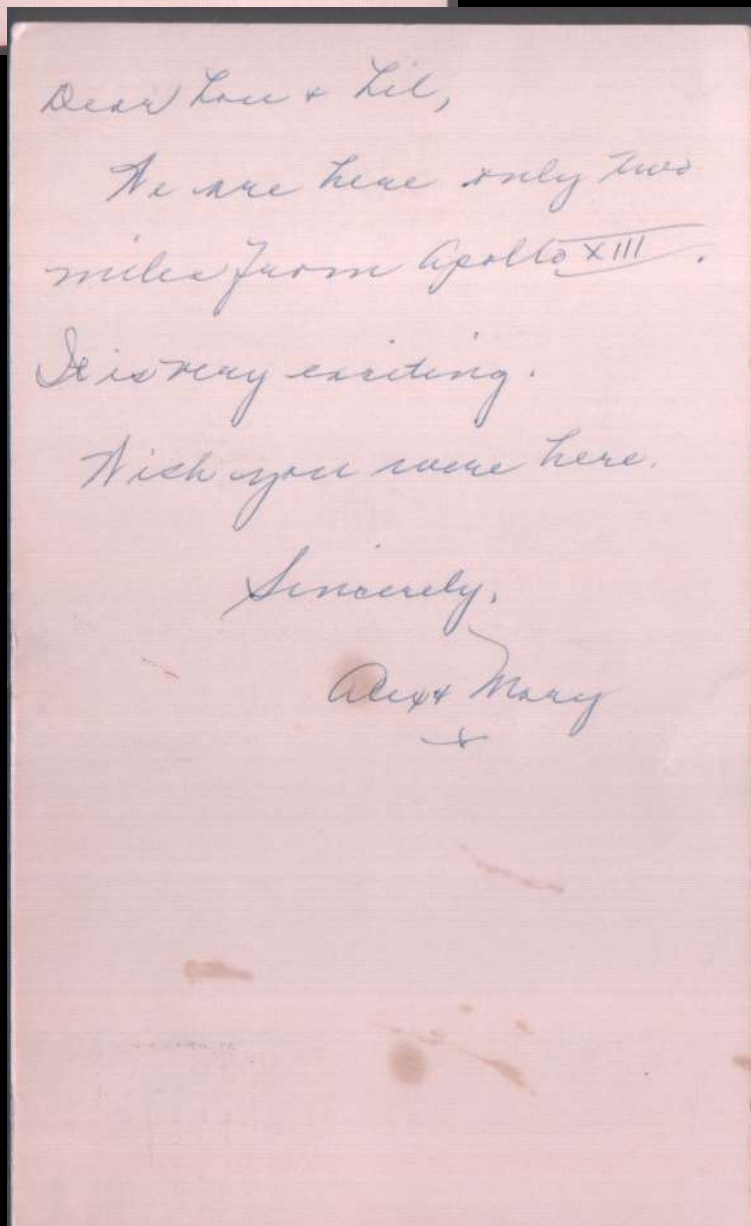 Dear Lou & Lil,
We are here only two
miles from Apollo XIII.
It is very exciting.
Wish you were here.
Sincerely,
Alex & Mary